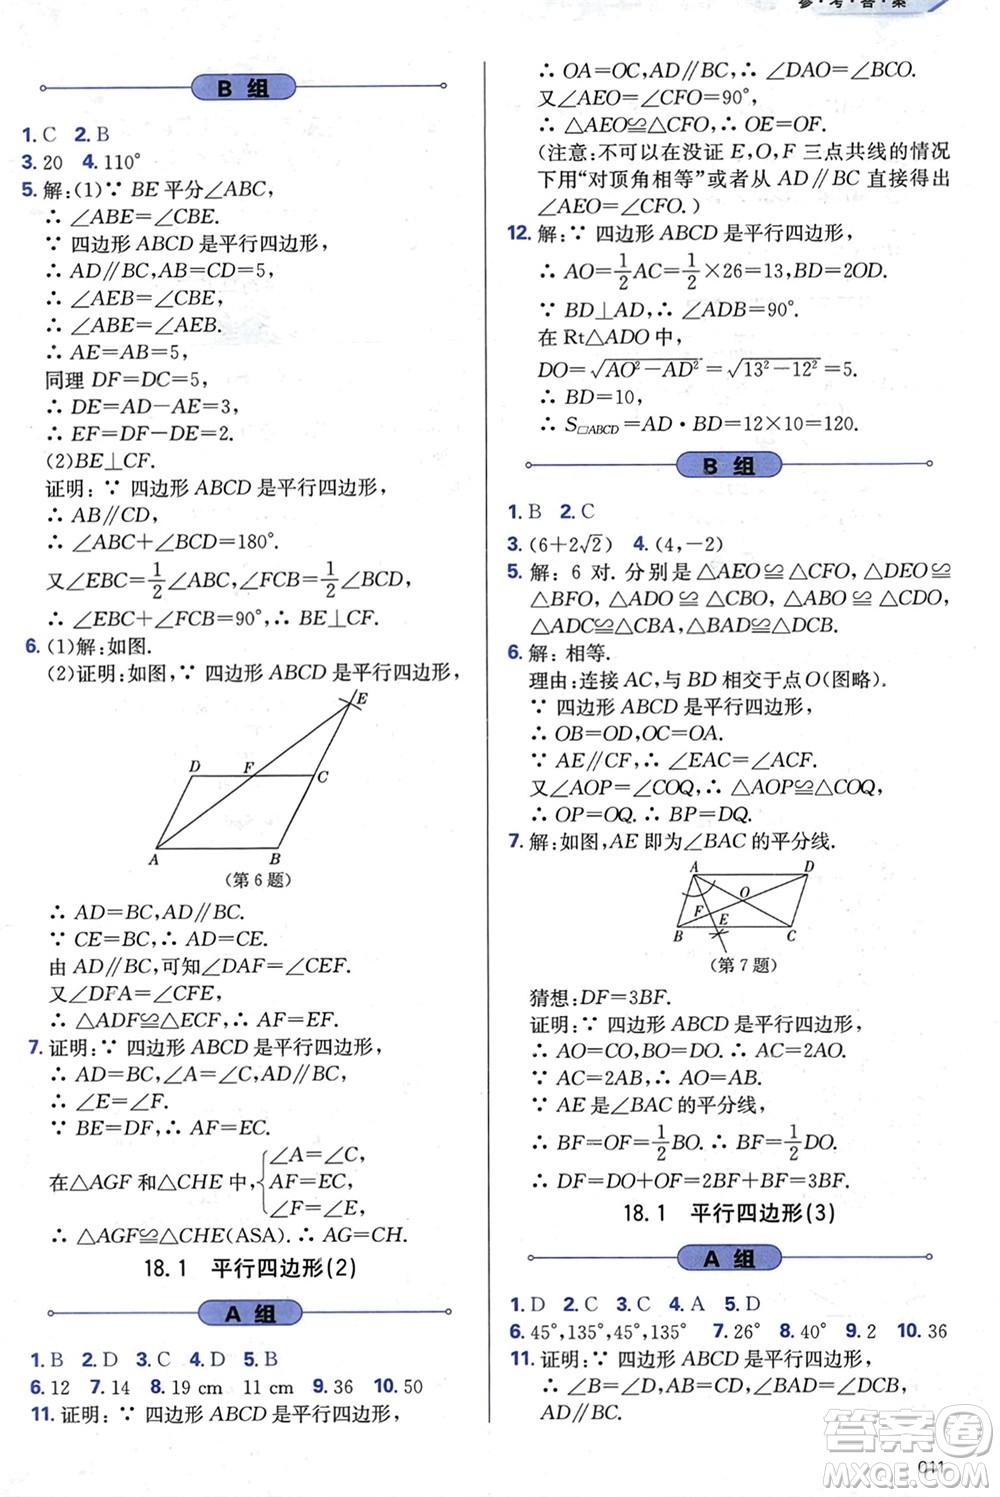 参·考·答·案
B 组
1. C 2. B
3. 20 4. 110°
5. 解:(1)∵ BE 平分∠ABC,
∴ ∠ABE=∠CBE.
∵ 四边形 ABCD 是平行四边形,
∴ AD∥BC,AB=CD=5,
∴ ∠AEB=∠CBE,
∴ ∠ABE=∠AEB.
∴ AE=AB=5,
同理 DF=DC=5,
∴ DE=AD-AE=3,
∴ EF=DF-DE=2.
(2)BE⊥CF.
证明:∵ 四边形 ABCD 是平行四边形,
∴ AB∥CD,
∴ ∠ABC+∠BCD=180°.
又∠EBC=1/2∠ABC,∠FCB=1/2∠BCD,
∴ ∠EBC+∠FCB=90°,∴ BE⊥CF.
6. (1)解:如图.
(2)证明:如图,∵ 四边形 ABCD 是平行四边形,
E
D F C
A B
(第 6 题)
∴ AD=BC,AD∥BC.
∵ CE=BC,∴ AD=CE.
由 AD∥BC,可知∠DAF=∠CEF.
又∠DFA=∠CFE,
∴ △ADF≌△ECF,∴ AF=EF.
7. 证明:∵ 四边形 ABCD 是平行四边形,
∴ AD=BC,∠A=∠C,AD∥BC,
∴ ∠E=∠F.
∵ BE=DF,∴ AF=EC.
在△AGF 和△CHE 中{∠A=∠C,
AF=EC,
∠F=∠E,
∴ △AGF≌△CHE(ASA).∴ AG=CH.
18.1 平行四边形(2)
A 组
1. B 2. D 3. C 4. D 5. B
6. 12 7. 14 8. 19 cm 11 cm 9. 36 10. 50
11. 证明:∵ 四边形 ABCD 是平行四边形,
∴ OA=OC,AD∥BC,∴ ∠DAO=∠BCO.
又∠AEO=∠CFO=90°,
∴ △AEO≌△CFO,∴ OE=OF.
(注意:不可以在没证 E,O,F 三点共线的情况
下用“对顶角相等”或者从 AD∥BC 直接得出
∠AEO=∠CFO.)
12. 解:∵ 四边形 ABCD 是平行四边形,
∴ AO=1/2AC=1/2×26=13,BD=2OD.
∵ BD⊥AD,∴ ∠ADB=90°.
在 Rt△ADO 中,
DO=√(AO²-AD²)=√(13²-12²)=5.
∴ BD=10,
∴ S□ABCD=AD·BD=12×10=120.
B 组
1. B 2. C
3. (6+2√2) 4. (4,-2)
5. 解: 6 对. 分别是△AEO≌△CFO,△DEO≌
△BFO, △ADO≌△CBO, △ABO≌△CDO,
△ADC≌△CBA,△BAD≌△DCB.
6. 解: 相等.
理由:连接 AC,与 BD 相交于点 O(图略).
∵ 四边形 ABCD 是平行四边形,
∴ OB=OD,OC=OA.
∵ AE∥CF,∴ ∠EAC=∠ACF.
又∠AOP=∠COQ,∴ △AOP≌△COQ,
∴ OP=OQ. ∴ BP=DQ.
7. 解:如图,AE 即为∠BAC 的平分线.
A D
O
F E
B C
(第 7 题)
猜想: DF=3BF.
证明:∵ 四边形 ABCD 是平行四边形,
∴ AO=CO,BO=DO,∴ AC=2AO.
∵ AC=2AB,∴ AO=AB.
∵ AE 是∠BAC 的平分线,
∴ BF=OF=1/2BO. ∴ BF=1/2DO.
∴ DF=DO+OF=2BF+BF=3BF.
18.1 平行四边形(3)
A 组
1. D 2. C 3. C 4. A 5. D
6. 45°,135°,45°,135° 7. 26° 8. 40° 9. 2 10. 36
11. 证明:∵ 四边形 ABCD 是平行四边形,
∴ ∠B=∠D,∠BAD=∠BCD,
AD∥BC.
答案圈
MXQE.COM
011